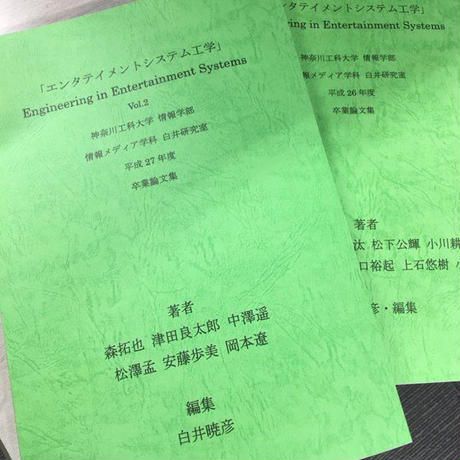 「エンタテイメントシステム工学」
Engineering in Entertainment Systems
Vol.2
神奈川工科大学 情報学部
情報メディア学科 白井研究室
平成27年度
卒業論文集
著者
森拓也 津田良太郎 中澤遥
松澤孟 安藤歩美 岡本遼
編集
白井暁彦
「エンタテイメントシステム工学」
Engineering in Entertainment Systems
神奈川工科大学 情報学部
情報メディア学科 白井研究室
平成26年度
卒業論文集
著者
汰 松下公輝 小川耕
口裕起 上石悠樹
彦・編集